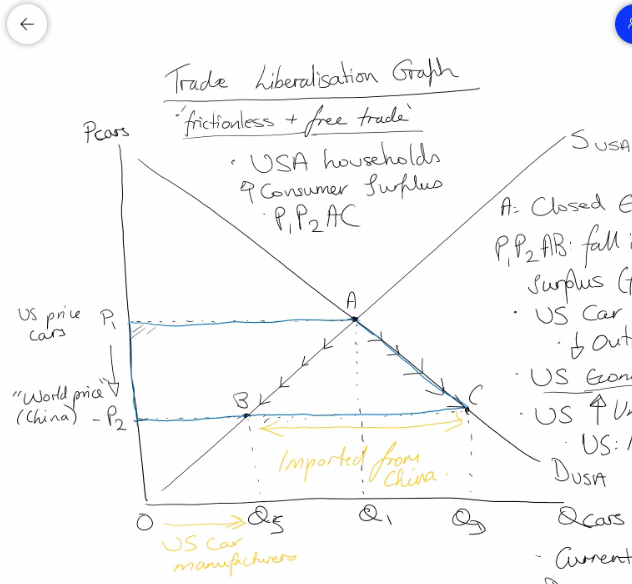 Trade Liberalisation Graph
"frictionless + free trade"
Pcars
· USA households
↑ Consumer Surplus
· P₁P₂AC
SUSA
A: Closed E
P₁P₂AB: fall i
Surplus (
· US Car
↓ Out
· US Econ
· US ↑ Un
· US:
A
US price
cars
P₁
"World price"
(China)
P₂
B
C
Imported from
China.
DUSA
O
QS
Q₁
QD
Qcars
US Car
manufacturers
· Current